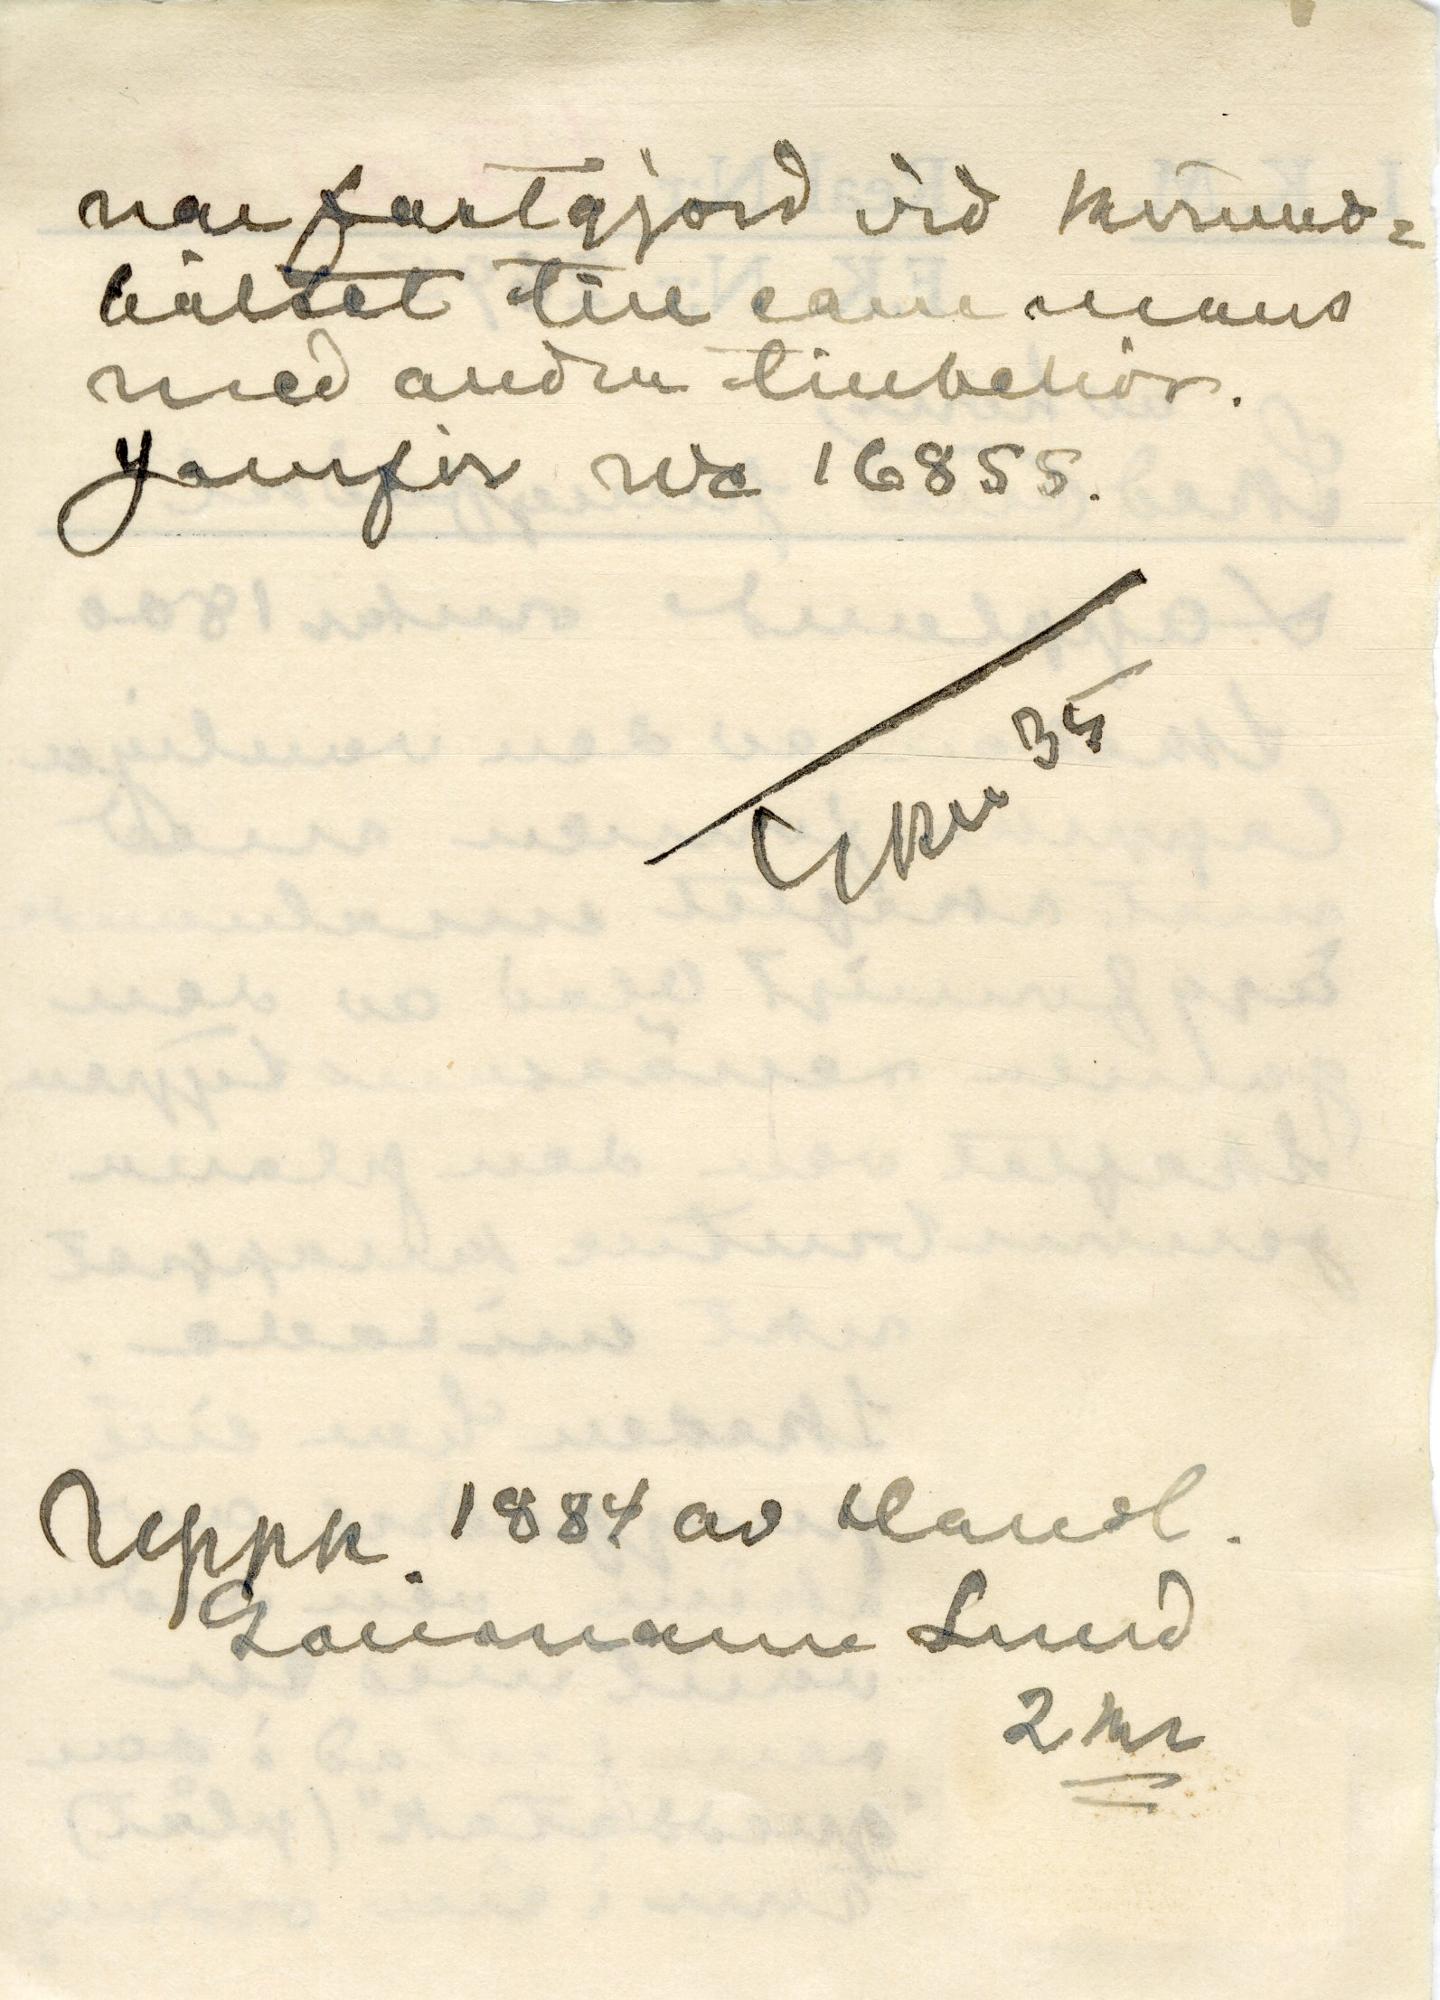 var fastgjord vid kvinno-
bältet tillsammans
med andra tillbehör.
Jämför No 16855.
35
Uppk. 1884 av Handl.
Lund
2 kr